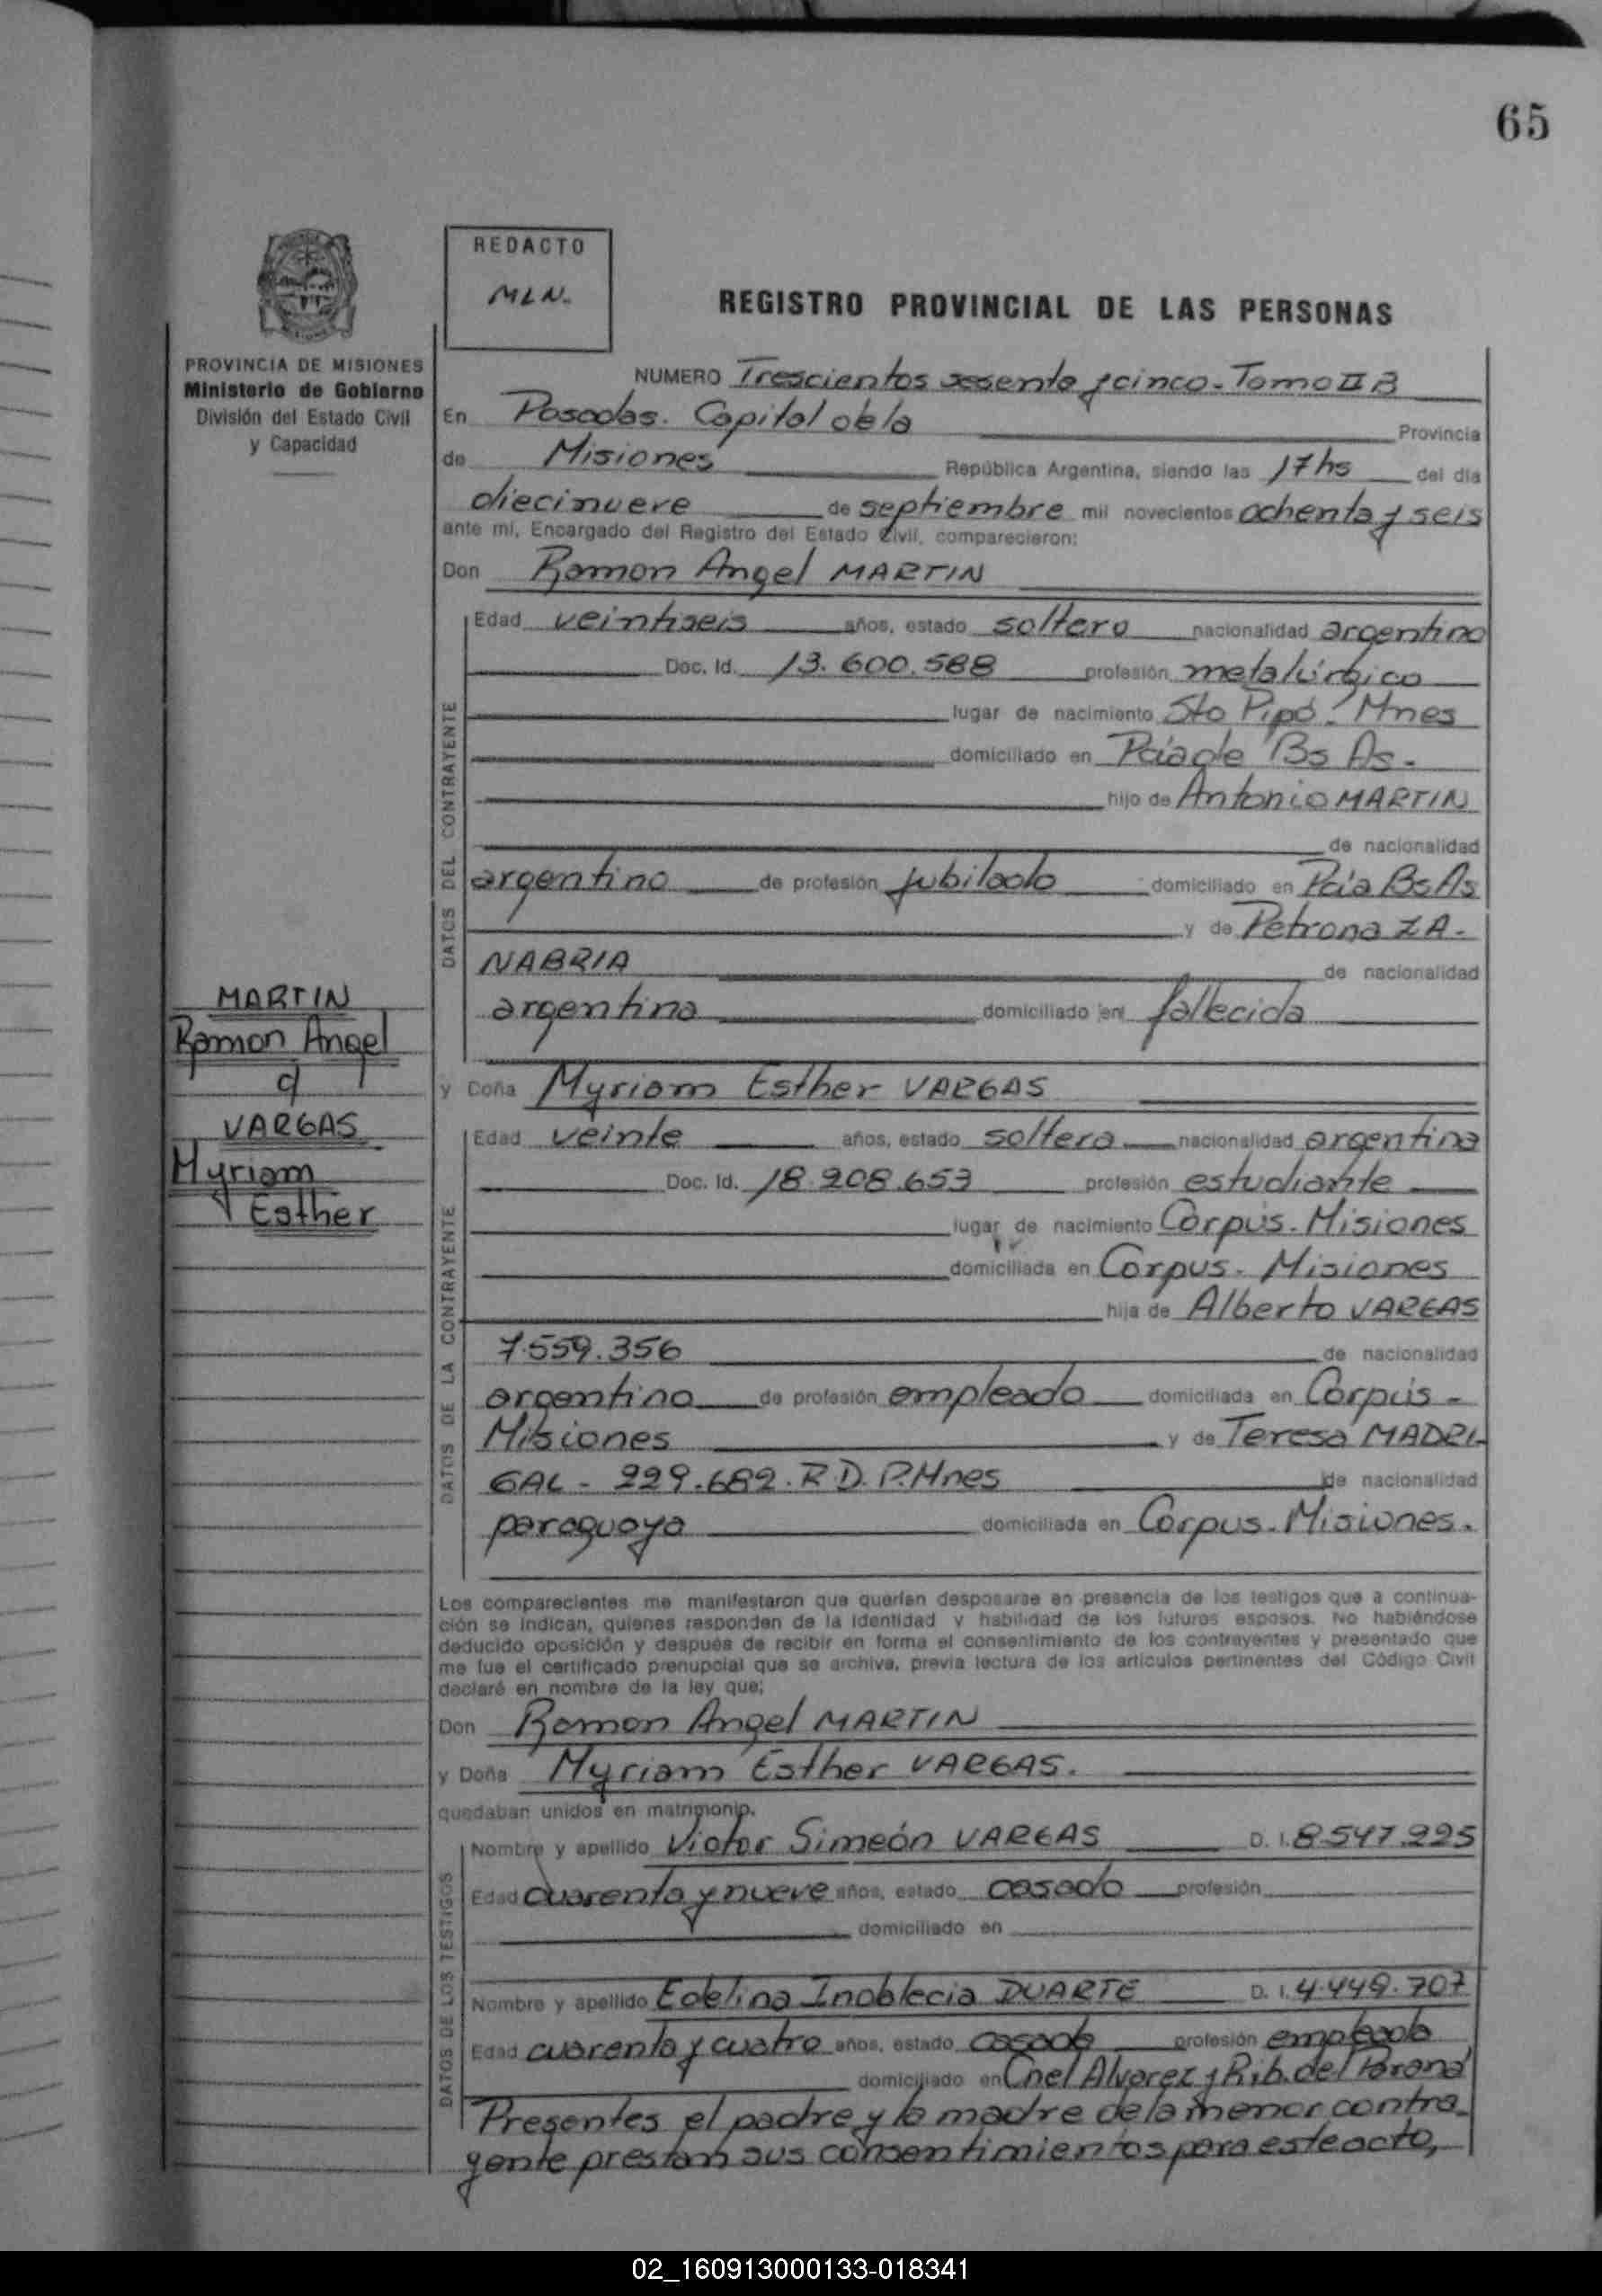 65
REDACTO
MLN.
REGISTRO PROVINCIAL DE LAS PERSONAS
PROVINCIA DE MISIONES
Ministerio de Gobierno
División del Estado Civil
y Capacidad
NUMERO Trescientos sesenta y cinco - Tomo II B
En Posadas. Capital de la Provincia
de Misiones República Argentina, siendo las 17 hs del día
diecinueve de septiembre mil novecientos ochenta y seis
ante mí, Encargado del Registro del Estado Civil, comparecieron:
Don Ramon Angel MARTIN
DATOS DEL CONTRAYENTE
Edad veintiseis años, estado soltero nacionalidad argentino
Doc. Id. 13.600.588 profesión metalúrgico
lugar de nacimiento Sto Pipó - Mnes
domiciliado en Pcia de Bs As.
hijo de Antonio MARTIN
de nacionalidad
argentino de profesión jubilado domiciliado en Pcia Bs As
y de Petrona ZA-
NABRIA de nacionalidad
argentina domiciliado en fallecida
MARTIN
Ramon Angel
c/
VARGAS
Myriam
Esther
y Doña Myriam Esther VARGAS
DATOS DE LA CONTRAYENTE
Edad veinte años, estado soltera nacionalidad argentina
Doc. Id. 18.208.653 profesión estudiante
lugar de nacimiento Corpus - Misiones
domiciliada en Corpus - Misiones
hija de Alberto VARGAS
7.559.356 de nacionalidad
argentino de profesión empleado domiciliada en Corpus -
Misiones y de Teresa MADRI-
GAL - 229.682. R.D.P. Mnes de nacionalidad
paraguaya domiciliada en Corpus - Misiones.
Los comparecientes me manifestaron que querían desposarse en presencia de los testigos que a continua-
ción se indican, quienes responden de la identidad y habilidad de los futuros esposos. No habiéndose
deducido oposición y después de recibir en forma el consentimiento de los contrayentes y presentado que
me fue el certificado prenupcial que se archiva, previa lectura de los artículos pertinentes del Código Civil
declaré en nombre de la ley que:
Don Ramon Angel MARTIN
y Doña Myriam Esther VARGAS.
quedaban unidos en matrimonio.
DATOS DE LOS TESTIGOS
Nombre y apellido Victor Simeón VARGAS D. I. 8.547.225
Edad cuarenta y nueve años, estado casado profesión
domiciliado en
Nombre y apellido Edelina Inoblecia DUARTE D. I. 4.449.707
Edad cuarenta y cuatro años, estado casada profesión empleada
domiciliado en Cnel Alvarez y Rib. del Paraná
Presentes el padre y la madre de la menor contra-
yente prestan sus consentimientos para este acto,
02_160913000133-018341